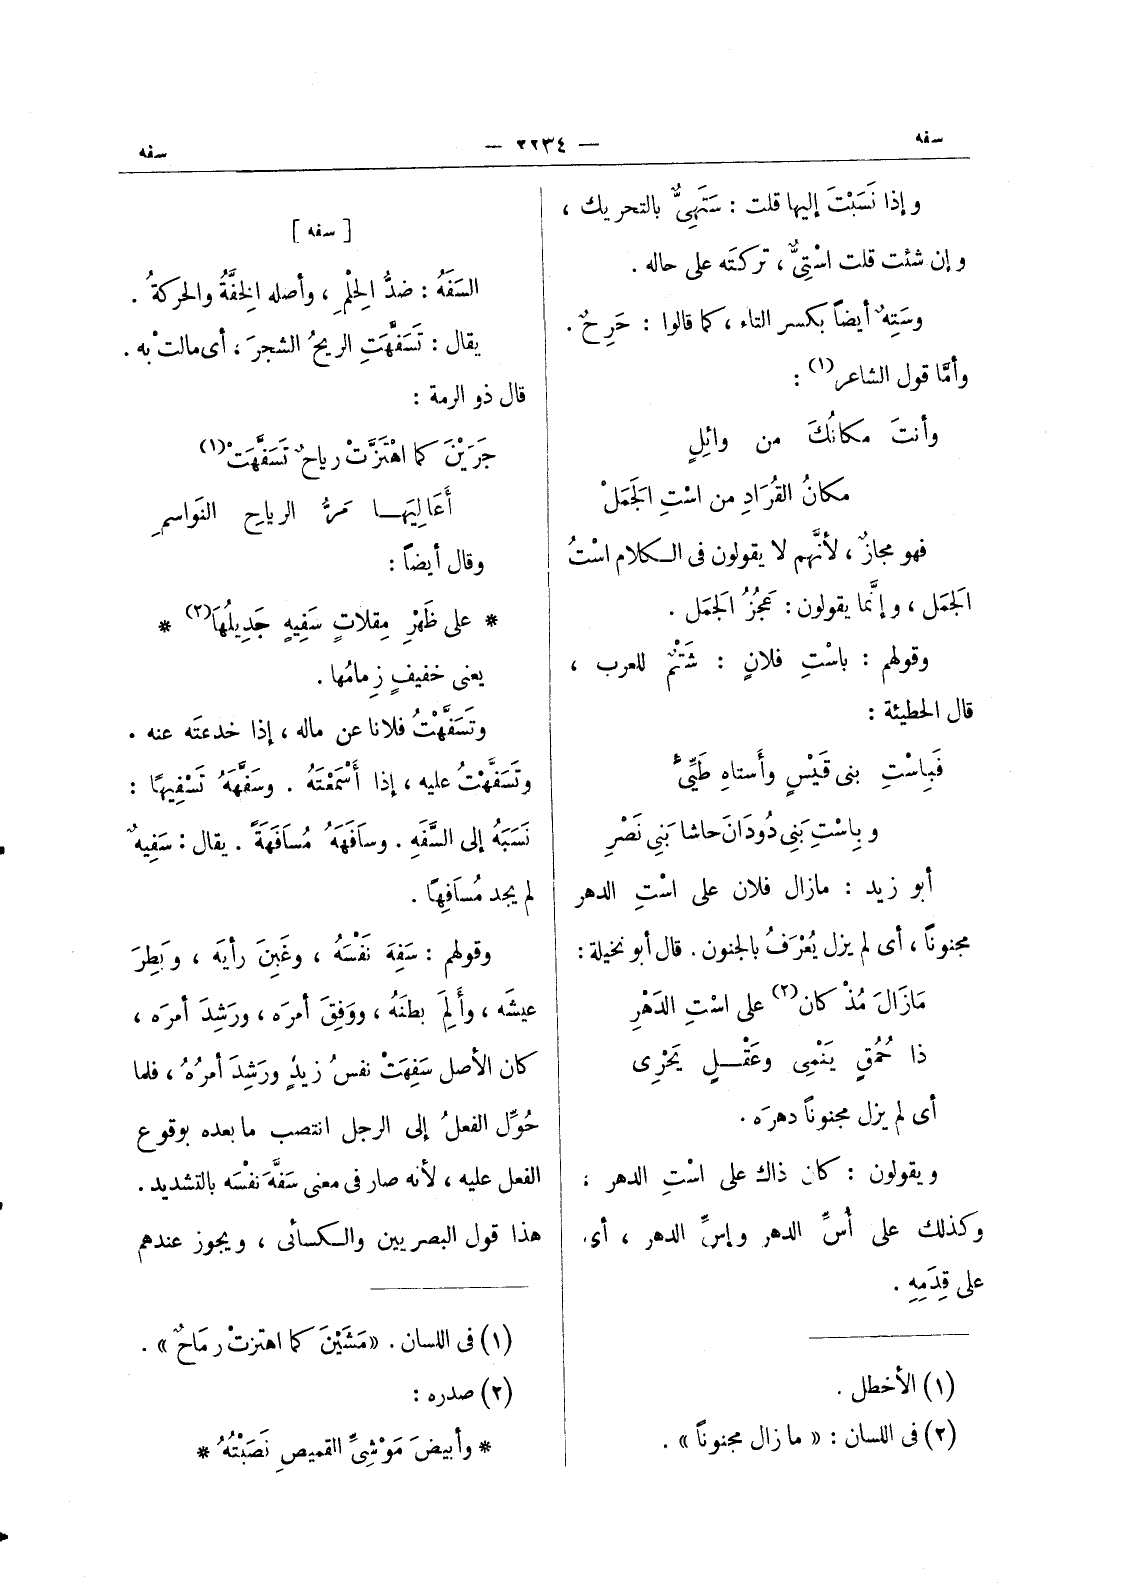 سفه
— ٢٢٣٤ —
سفه
وإذا نَسَبْتَ إليها قلت : سَتَهِىٌّ بالتحريك ،
وإن شئت قلت اسْتِىٌّ ، تركتَه على حاله .
وسَتِهٌ أيضاً بكسر التاء ، كما قالوا : حَرِحٌ .
وأمَّا قول الشاعر(١) :
وأنتَ مكانُكَ من وائِلٍ
مكانُ القُرَادِ من اسْتِ الجَمَلْ
فهو مجازٌ ، لأنَّهم لا يقولون فى الكلام اسْتُ
الجَمَل ، وإنَّما يقولون : عَجُزُ الجَمَل .
وقولهم : باسْتِ فلانٍ : شَتْمٌ للعرب ،
قال الحطيئة :
فَبِاسْتِ بنى قَيْسٍ وأَستاهِ طَيِّئٍ
وبِاسْتِ بَنِى دُودَانَ حاشا بَنِى نَصْرِ
أبو زيد : مازال فلان على اسْتِ الدهر
مجنوناً ، أى لم يزل يُعْرَفُ بالجنون . قال أبو نخيلة :
مَازَالَ مُذْ كان(٢) على اسْتِ الدَهْرِ
ذا حُمُقٍ يَنْمِى وعَقْلٍ يَحْرِى
أى لم يزل مجنوناً دهرَه .
ويقولون : كان ذاك على اسْتِ الدهر :
وكذلك على أُسِّ الدهر وإسِّ الدهر ، أى
على قِدَمِهِ .
(١) الأخطل .
(٢) فى اللسان : « مازال مجنوناً » .
[ سفه ]
السَفَهُ : ضدُّ الحِلْمِ ، وأصله الخِفَّةُ والحركةُ .
يقال : تَسَفَّهَتِ الريحُ الشجرَ ، أى مالتْ به .
قال ذو الرمة :
جَرَيْنَ كما اهْتَزَّتْ رياحٌ تَسَفَّهَتْ(١)
أَعَالِيَهَا مَرُّ الرياحِ النَواسمِ
وقال أيضاً :
* على ظَهْرِ مِقلاتٍ سَفِيهٍ جَدِيلُهَا(٢) *
يعنى خفيفٍ زِمامُها .
وتَسَفَّهْتُ فلانا عن ماله ، إذا خدعتَه عنه .
وتَسَفَّهْتُ عليه ، إذا أَسْمَعْتَهُ . وسَفَّهَهُ تَسْفِيهًا :
نَسَبَهُ إلى السَّفَهِ . وسافَهَهُ مُسَافَهَةً . يقال : سَفِيهٌ
لم يجد مُسَافِهًا .
وقولهم : سَفِهَ نَفْسَهُ ، وغَبِنَ رأيَه ، وبَطِرَ
عيشَه ، وأَلِمَ بطنَهُ ، ووَفِقَ أمرَه ، ورَشِدَ أمرَه ،
كان الأصل سَفِهَتْ نفسُ زيدٍ ورَشِدَ أمرُهُ ، فلما
حُوِّل الفعلُ إلى الرجل انتصب مابعده بوقوع
الفعل عليه ، لأنه صار فى معنى سَفَّهَ نفْسَه بالتشديد .
هذا قول البصريين والكسائى ، ويجوز عندهم
(١) فى اللسان . «مَشَيْنَ كما اهتزتْ رمَاحٌ» .
(٢) صدره :
* وأبيضَ مَوْشِىِّ القميصِ نَصَبْتُهُ *